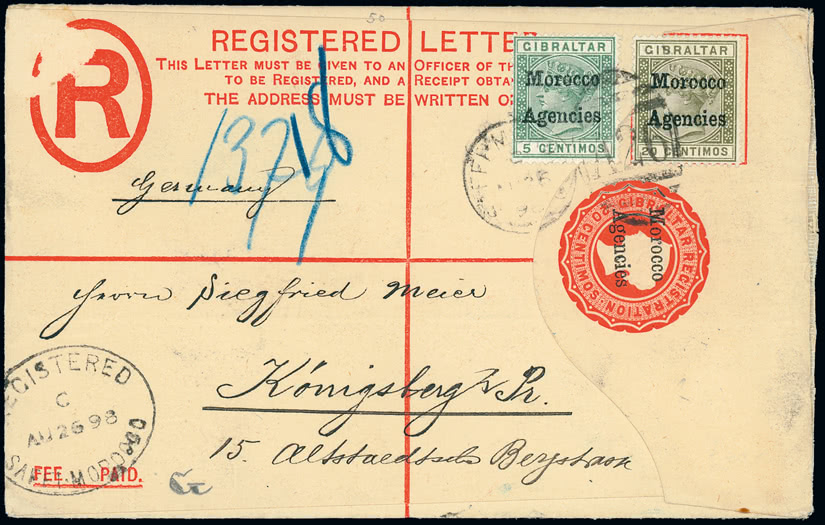 50
R
REGISTERED LETTE
THIS LETTER MUST BE GIVEN TO AN OFFICER OF THE
TO BE REGISTERED, AND A RECEIPT OBTA
THE ADDRESS MUST BE WRITTEN O
GIBRALTAR
Morocco
Agencies
5 CENTIMOS
GIBRALTAR
Morocco
Agencies
20 CENTIMOS
Germany
GIBRALTAR REGISTRATION
CENTIMOS
Morocco
Agencies
Herrn Siegfried Meier
Königsberg i/Pr.
15. Altstaedtsche Bergstrasse
REGISTERED
C
AU 26 98
FEE PAID.